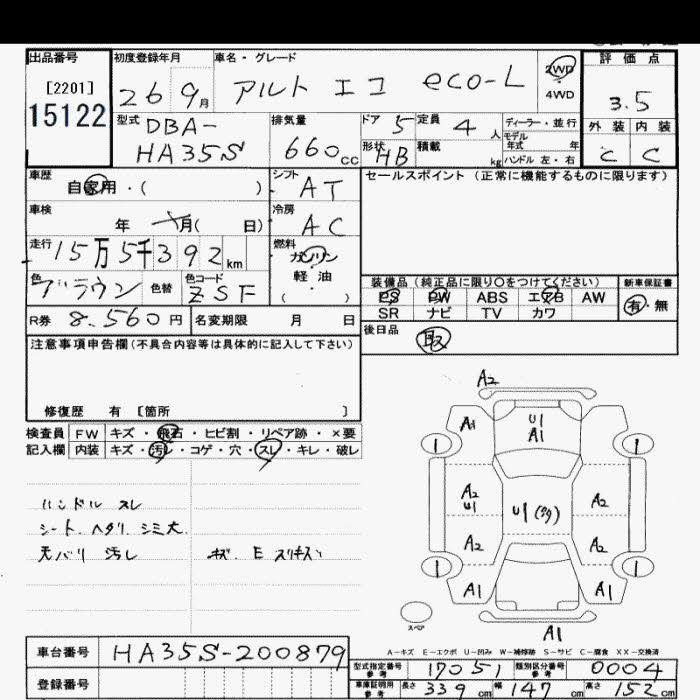 出品番号 初度登録年月 車名・グレード 評価点
[2201] 26 9月 アルト エコ eco-L 2WD 3.5
15122 4WD
型式 排気量 ドア 定員 ディーラー・並行 外装 内装
DBA- 5 4人 モデル
年式 年
HA35S 660cc 形状 HB 積載 kg ハンドル 左・右 C C
車歴 シフト セールスポイント (正常に機能するものに限ります)
自家用・( ) AT
車検 冷房
年 月( 日) AC
走行 燃料
15万5千392km ガソリン
色 色替 色コード 軽・油
ブラウン ZSF ( )
装備品(純正品に限り〇をつけてください) 新車保証書
PS PW ABS エアB AW 有・無
SR ナビ TV カワ
R券 8.560円 名変期限 月 日
後日品 取
注意事項申告欄(不具合内容等は具体的に記入して下さい)
修復歴 有 [箇所 ]
検査員 FW キズ・飛石・ヒビ割・リペア跡・×要
記入欄 内装 キズ・汚レ・コゲ・穴・スレ・キレ・破レ
ハンドル スレ
シート ヘタリ シミ大
天バリ 汚レ
A2
A1 U1
A1
1 1
A2
U1 U1(多) A2
A2 A2
1 1
A1 A1
スペア
A1
A-キズ E-エクボ U-凹み W-補修跡 S-サビ C-腐食 XX-交換済
車台番号 HA35S-200879
登録番号
型式指定番号 参考 17051 類別区分番号 参考 0004
車庫証明用 参考 長さ 339cm 幅 147cm 高さ 152cm